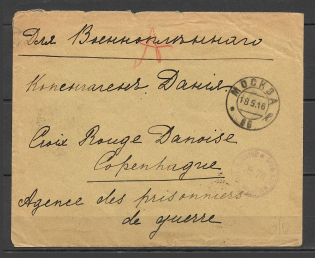 Для Военноплѣннаго
Копенгагенъ. Данія.
МОСКВА
18.5.16
Croix Rouge Danoise
Copenhague
Agence des prisonniers
de guerre